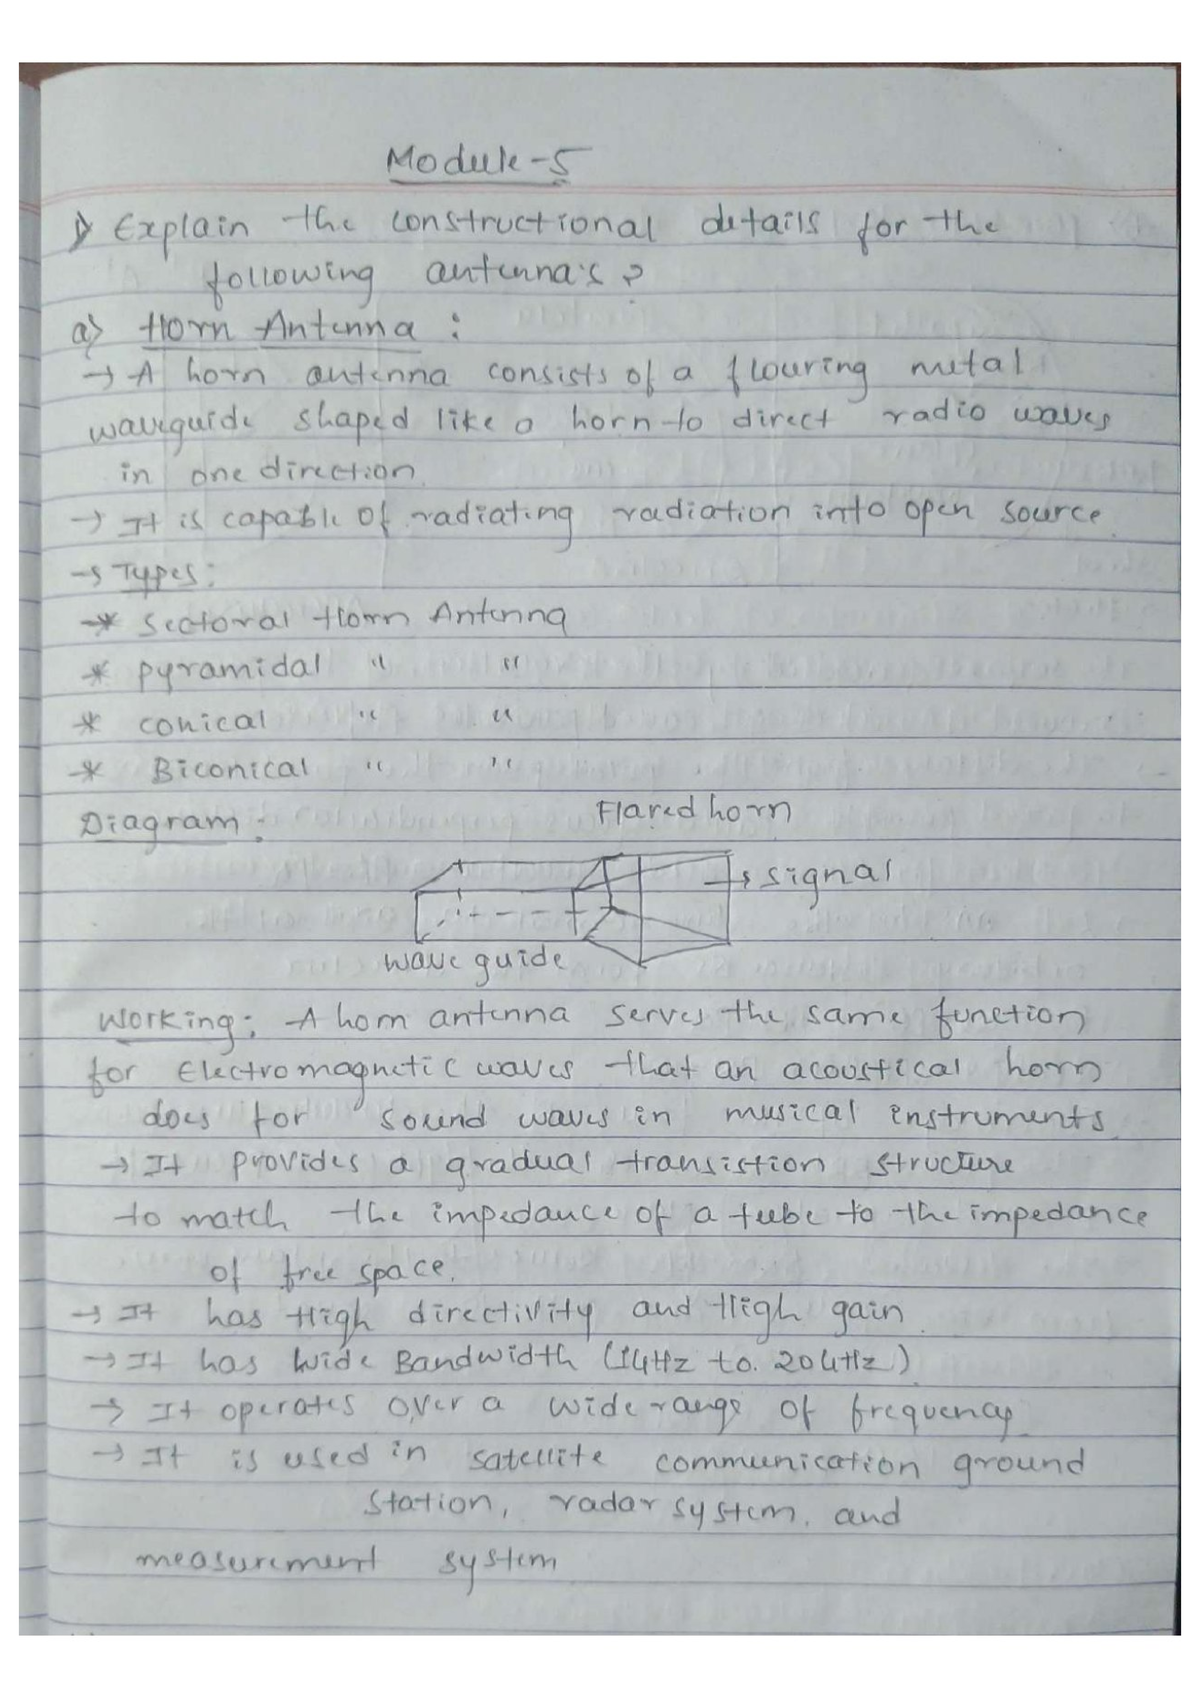 Module-5
1) Explain the constructional details for the
following antenna's?
a) Horn Antenna :
→ A horn antenna consists of a flouring metal
waveguide shaped like a horn to direct radio waves
in one direction.
→ It is capable of radiating radiation into open source.
→ Types:
→* Sectoral Horn Antenna
* pyramidal " "
* conical " "
* Biconical " "
Diagram: Flared horn
→ signal
wave guide
Working: A horn antenna serves the same function
for Electromagnetic waves that an acoustical horn
does for sound waves in musical instruments.
→ It provides a gradual transistion structure
to match the impedance of a tube to the impedance
of free space.
→ It has High directivity and High gain.
→ It has wide Bandwidth (1GHz to. 20GHz)
→ It operates over a wide range of frequency.
→ It is used in satellite communication ground
station, radar system, and
measurement system